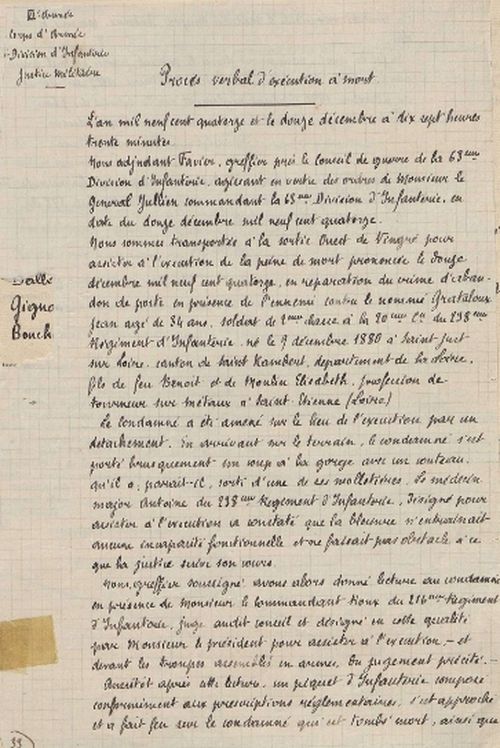 VIe Armée
Corps d'Armée
Division d'Infanterie
Justice Militaire
Procès verbal d'exécution à mort
L'an mil neuf cent quatorze et le douze décembre à dix sept heures
trente minutes
Nous adjudant Favier, greffier près le Conseil de guerre de la 63ème
Division d'Infanterie, agissant en vertu des ordres de Monsieur le
Général Jullien commandant la 63ème Division d'Infanterie, en
date du douze décembre mil neuf cent quatorze.
Nous sommes transportés à la sortie Ouest de Vingré pour
assister à l'exécution de la peine de mort prononcée le douze
décembre mil neuf cent quatorze, en réparation du crime d'aban-
don de poste en présence de l'ennemi contre le nommé Grataloux
Jean âgé de 34 ans, soldat de 2ème classe à la 20ème Cie du 298ème
Régiment d'Infanterie, né le 9 décembre 1880 à Saint-Just
sur Loire, canton de Saint Rambert, département de la Loire,
fils de feu Benoit et de Moulin Elisabeth, profession de
tourneur sur métaux à Saint-Etienne (Loire)
Le condamné a été amené sur le lieu de l'exécution par un
détachement. En arrivant sur le terrain, le condamné s'est
porté brusquement un coup à la gorge avec un couteau,
qu'il a, paraît-il, sorti d'une de ses molletières. Le médecin
major Antoine du 238ème Régiment d'Infanterie, désigné pour
assister à l'exécution a constaté que la blessure n'entrainait
aucune incapacité fonctionnelle et ne faisait pas obstacle à ce
que la justice suive son cours.
Nous, greffier soussigné avons alors donné lecture au condamné
en présence de Monsieur le Commandant Roux du 216ème Régiment
d'Infanterie, Juge audit conseil et désigné en cette qualité
par Monsieur le président pour assister à l'exécution, - et
devant les troupes assemblées en armes, Du jugement précité. -
Aussitôt après cette lecture, un piquet d'Infanterie composé
conformément aux prescriptions réglementaires, s'est approché
et a fait feu sur le condamné qui est tombé mort, ainsi que
Dalle
Gigno
Bouch